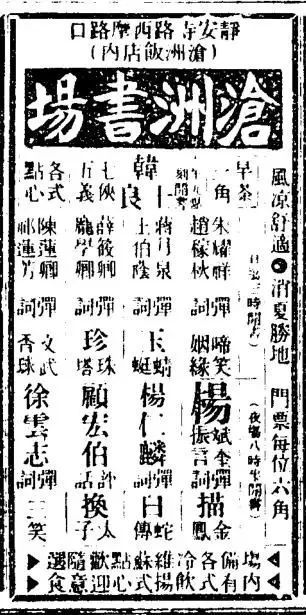 靜安寺路西摩路口
(滄洲飯店內)
滄洲書場
風凉舒適●消夏勝地 門票每位六角
早茶一角
(日塲三時開書)
(夜塲八時半開書)
朱耀祥 趙稼秋 彈詞 啼笑姻緣
楊斌奎 振言 彈詞 描金鳳
韓士良 七俠五義
蔣月泉 王伯蔭 彈詞 玉蜻蜓
楊仁麟 彈詞 白蛇傳
薛筱卿 龐學卿 彈詞 珍珠塔
顧宏伯 評話 換太子
各式點心
陳蓮卿 祁蓮芳 彈詞 文武香球
徐雲志 彈詞 三笑
場內備有各式冷飲維揚蘇式點心歡迎隨意選食